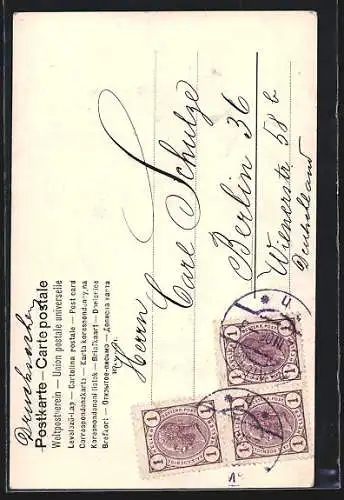 Drucksache
Postkarte – Carte postale
Weltpostverein – Union postale universelle
Levelező-Lap – Cartolina postale – Post card
Correspondenzkarte – Karta korespondencyjna
Korespondenční lístek – Briefkaart – Dopisnice
Brefkort – Открытое письмо – Дописна карта
Herrn
Carl Schulze
Berlin 36
Wienerstr 58 b
Deutschland
1 1
1 1
1 1